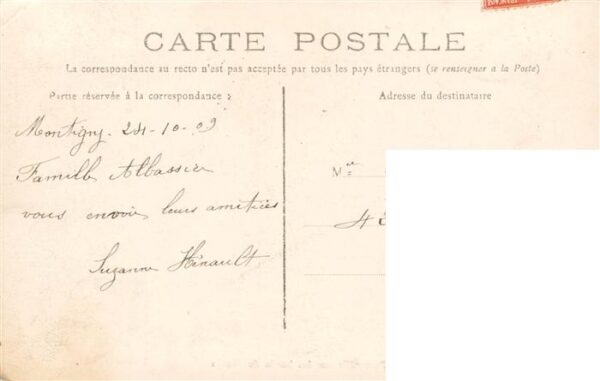 CARTE POSTALE
La correspondance au recto n'est pas acceptée par tous les pays étrangers (se renseigner à la Poste)
Partie réservée à la correspondance
Adresse du destinataire
Montigny. 24-10-09
Famille Albassier
vous envoie leurs amitiés
Suzanne Hinault
M